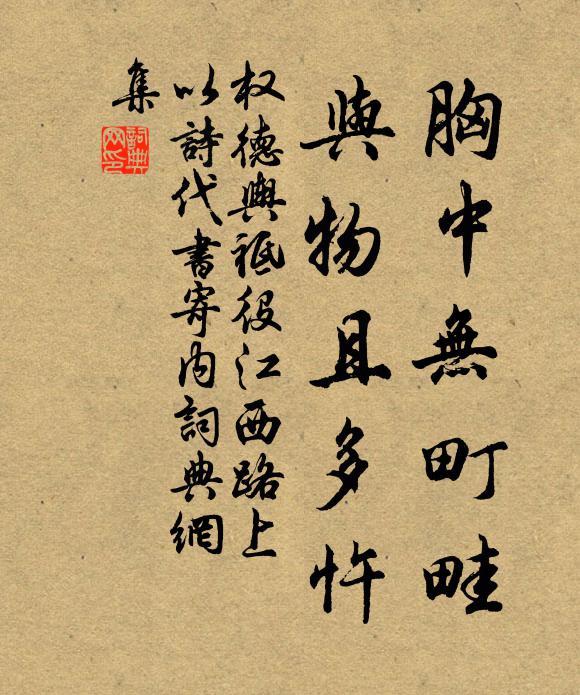 胸中無町畦
與物且多忤
权德輿祗役江西路上
以詩代書寄内詞典網
集
詞典网印